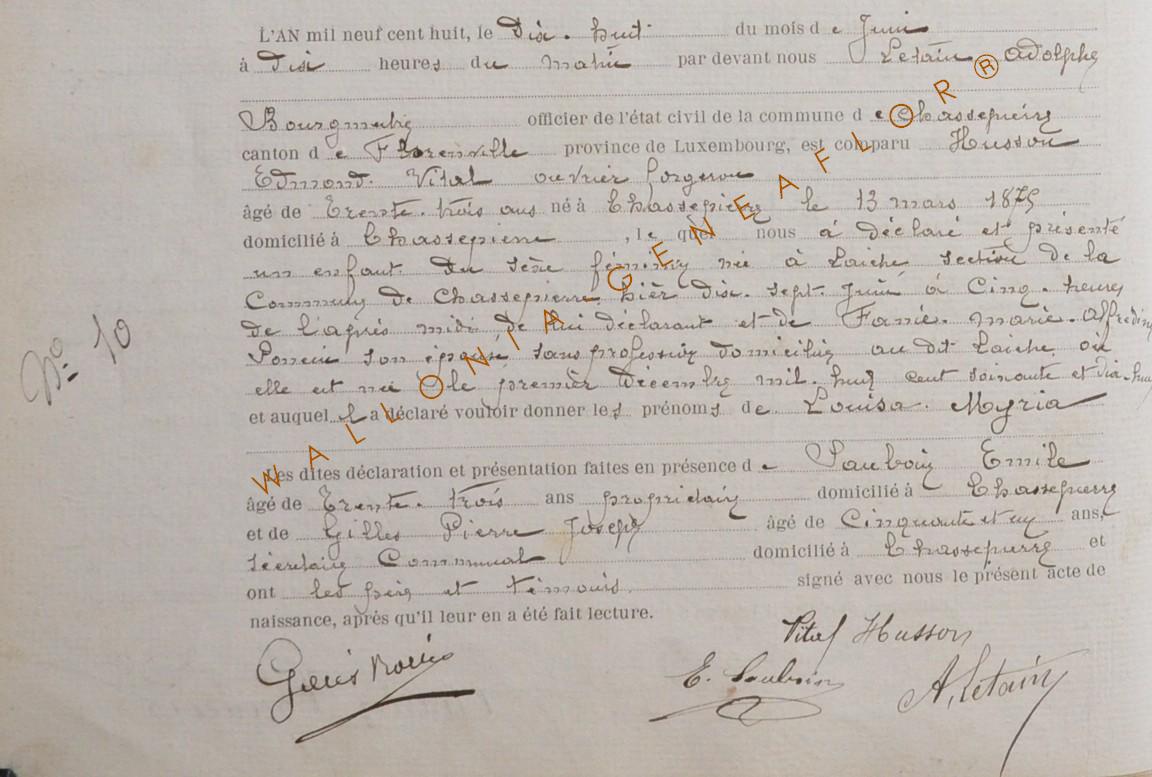 L'AN mil neuf cent huit, le Dix-huit du mois de Juin
à Dix heures du matin par devant nous Letain Adolphe
Bourgmestre officier de l'état civil de la commune de Chassepierre
canton de Florenville province de Luxembourg, est comparu Husson
Edmond Vital ouvrier forgeron
âgé de Trente-trois ans né à Chassepierre le 13 mars 1875
domicilié à Chassepierre, lequel nous à déclaré et présenté
un enfant du sexe féminin née à Laiche section de la
Commune de Chassepierre hièr dix-sept Juin à Cinq heures
de l'après midi de lui déclarant et de Fanie Marie
son épouse sans profession domiciliée au dit Laiche où
elle est née le premier Décembre mil huit cent soixante et dix-huit
et auquel il a déclaré vouloir donner les prénoms de Louisa Myria
Les dites déclaration et présentation faites en présence de Sauboin Emile
âgé de Trente-trois ans propriétaire domicilié à Chassepierre
et de Gilles Pierre Joseph âgé de Cinquante et un ans,
Sécretaire Communal domicilié à Chassepierre et
ont les père et témoins signé avec nous le présent acte de
naissance, après qu'il leur en a été fait lecture.
Vital Husson
E. Sauboin
A. Letain
N° 10
WALLONIA GENEAFLOR ®